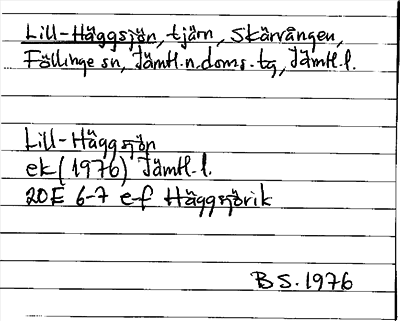 Lill-Häggsjön, tjärn, Skärvången,
Föllinge sn, Jämtl.n.doms.tg, Jämtl.l.
Lill-Häggsjön
ek (1976) Jämtl.l.
20E 6-7 e-f Häggsjövik
B S. 1976